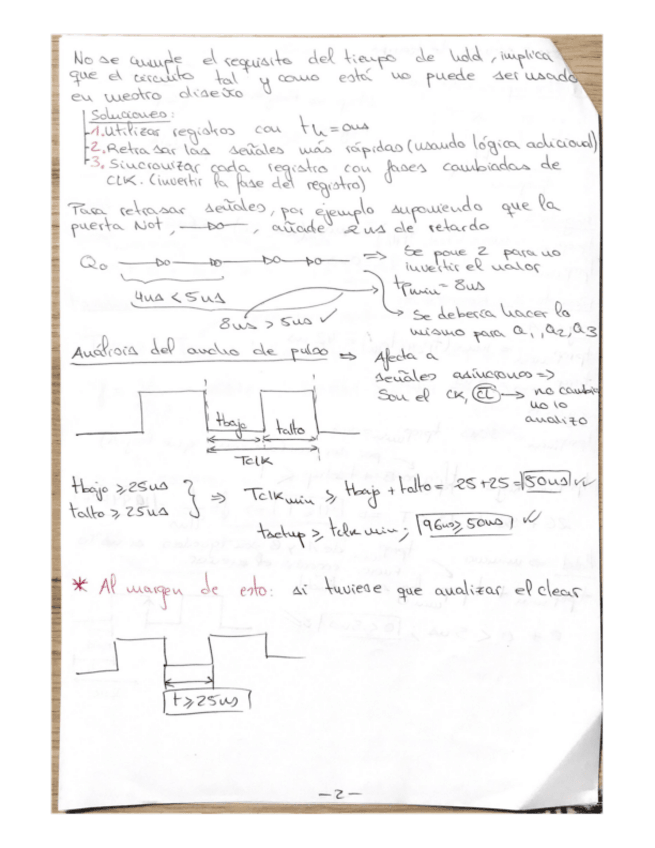 No se cumple el requisito del tiempo de hold, implica
que el circuito tal y como está no puede ser usado
en nuestro diseño
Soluciones:
1. Utilizar registros con th=0ns
2. Retrasar las señales más rápidas (usando lógica adicional)
3. Sincronizar cada registro con fases cambiadas de
CLK. (invertir la fase del registro)
Para retrasar señales, por ejemplo suponiendo que la
puerta Not, , añade 2ns de retardo
Q0 => Se pone 2 para no
invertir el valor
4ns < 5ns
tpmin = 8ns
8ns > 5ns ✓
Se debería hacer lo
mismo para Q1, Q2, Q3
Análisis del ancho de pulso => Afecta a
señales asíncronas =>
Son el CK, CL → no cambia
no lo
analizo
tbajo talto
TCLK
tbajo ≥ 25ns
talto ≥ 25ns
} => TCLKmin ≥ tbajo + talto = 25+25 = 50ns ✓
tsetup ≥ tclk min; 96ns ≥ 50ns ✓
* Al margen de esto: si tuviese que analizar el clear
t ≥ 25ns
-2-